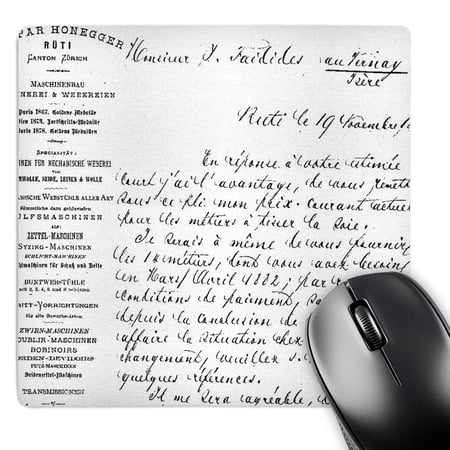 PAR HONEGGER
RÜTI
CANTON ZÜRICH
MASCHINENBAU
NEREI & WEBEREIEN
Paris 1867. Goldene Medaille
Wien 1873. Fortschritts-Medaille
Paris 1878. Goldene Medaillen
SPECIALITÄT:
INEN FÜR MECHANISCHE WEBEREI
von
WOLLE, SEIDE, LEINEN & WOLLE
NISCHE WEBSTÜHLE ALLER ART
sämmtliche dazu gehörenden
LFSMASCHINEN
als:
ZETTEL-MASCHINEN
SIZING-MASCHINEN
SCHLICHT-MASCHINEN
BUNTWEBSTÜHLE
mit 2, 3, 4, 6 und
RITT-VORRICHTUNGEN
für alle Gewebe-Arten.
ZWIRN-MASCHINEN
DOUBLIR-MASCHINEN
BOBINOIRS
TRANSMISSIONEN
Monsieur J. Faidides au Vernay
Isère
Ruti le 19 Novembre
En réponse à votre estimée
court j'ai l'avantage, de vous remett
sous ce pli mon prix-courant actuel
pour les métiers à tisser la soie.
Je serais à même de vous fournir
les 12 métiers, dont vous avez besoin
en Mars/Avril 1882; par
conditions de paiement,
depuis la conclusion de
affaire la situation chez
changement, veuillez
quelques références.
Il me sera agréable, d